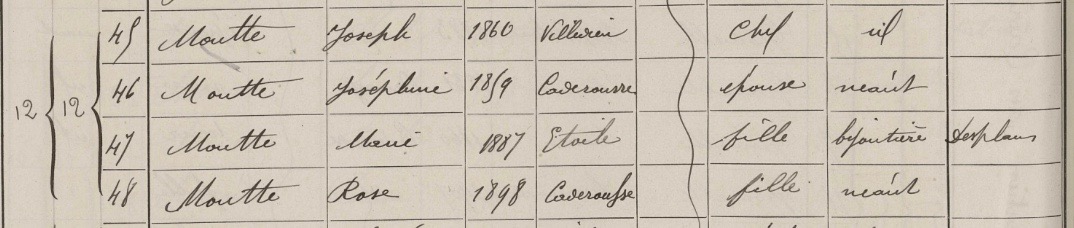 45 Moutte Joseph 1860 chef
12 12 46 Moutte Joséphine 1859 Caderousse épouse néant
47 Moutte Marie 1887 Etoile fille bijoutière Desplans
48 Moutte Rose 1898 Caderousse fille néant